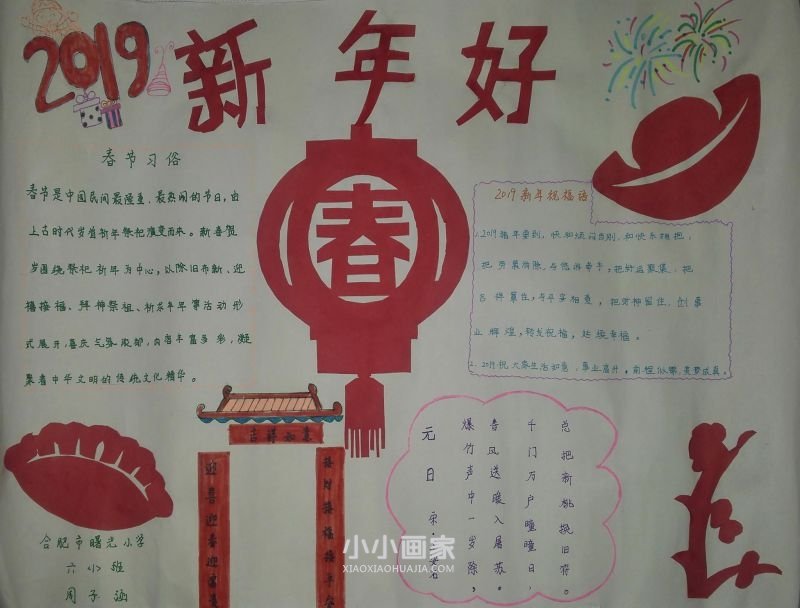 2019新年好
春节习俗
春节是中国民间最隆重、最热闹的节日,由
上古时代岁首祈年祭祀演变而来。新春贺
岁围绕祭祀祈年为中心,以除旧布新、迎
禧接福、拜神祭祖、祈求丰年等活动形
式展开,喜庆气氛浓郁,内容丰富多彩,凝
聚着中华文明的传统文化精华。
春
2019新年祝福语
1、2019猪年要到,快和烦闷告别,和快乐拥抱,
把劳累消除,与悠游牵手,把好运聚集,把
吉祥算住,与平安相邀,把财神留住,创事
业辉煌,转发祝福,延续幸福。
2、2019祝大家生活如意,事业高升,前程似锦,美梦成真。
吉祥如意
迎喜迎春迎富贵
接财接福接平安
元日 宋
爆竹声中一岁除,
春风送暖入屠苏。
千门万户曈曈日,
总把新桃换旧符。
合肥市曙光小学
六小班
周子涵
小小画家
XIAOXIAOHUAJIA.COM